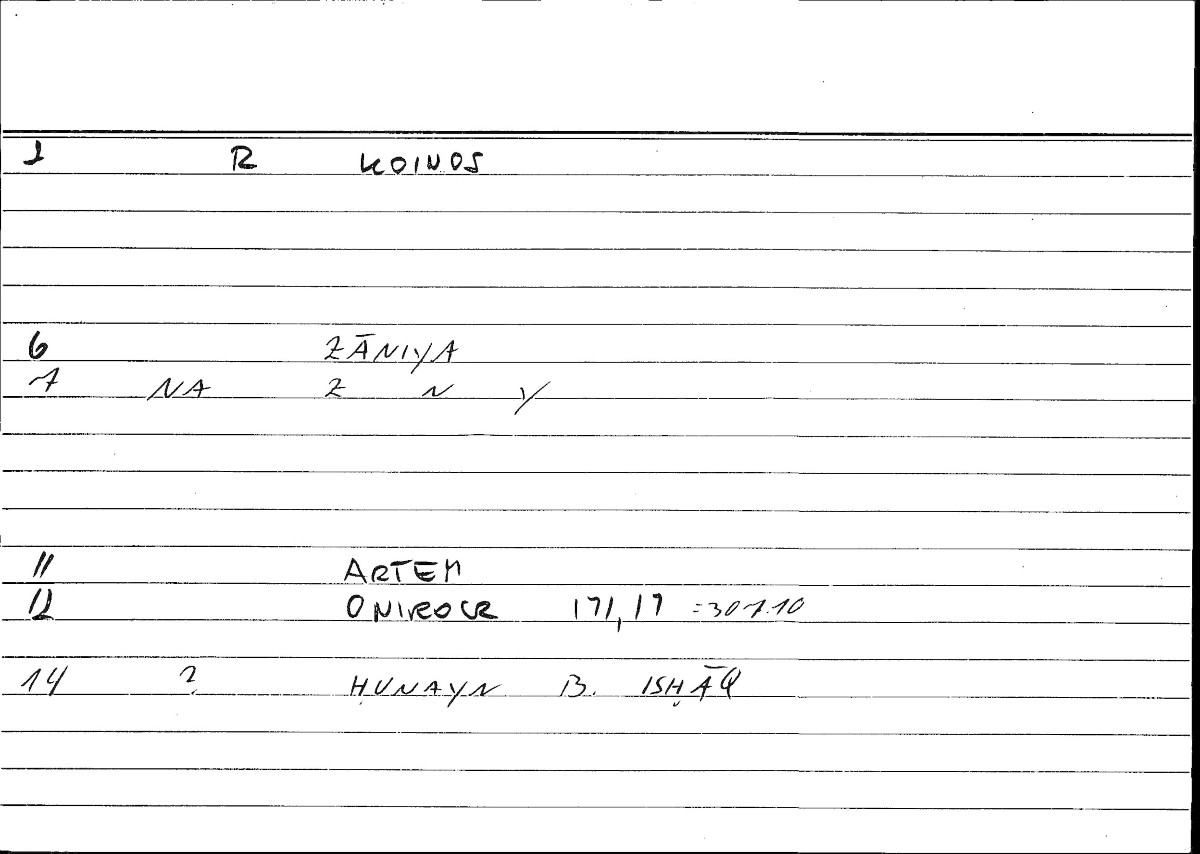 1 R KOINOS
6 ZĀNIYA
7 NA Z N Y
11 ARTEM
12 ONIROCR 171,17 =307.10
14 ? ḤUNAYN B. ISḤĀQ